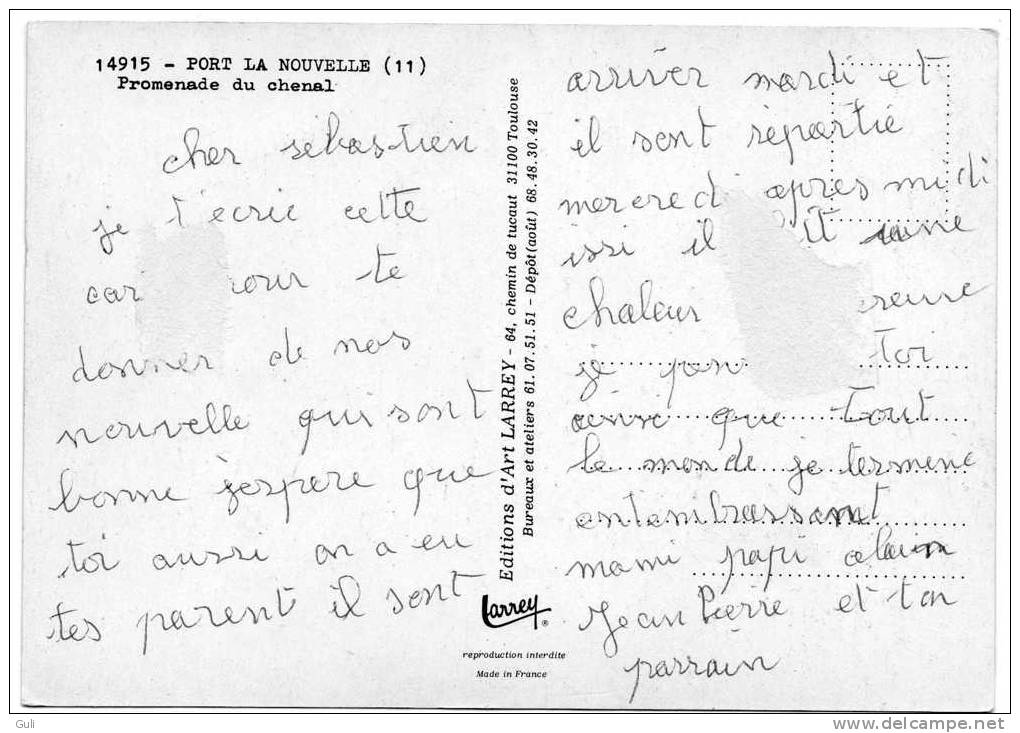 14915 - PORT LA NOUVELLE (11)
Promenade du chenal
cher sébastien
je t'ecrie cette
car our te
donner de nos
nouvelle qui sont
bonne j'espere que
toi aussi on a eu
tes parent il sont
Editions d'Art LARREY - 64, chemin de tucaut 31100 Toulouse
Bureaux et ateliers 61.07.51.51 - Dépôt (août) 68.48.30.42
Larrey ®
reproduction interdite
Made in France
arriver mardi et
il sont repartie
mercredi apres midi
issi il it une
chaleur reuse
je pen toi
que tout
le monde je termine
entembrassant
mami papi alain
Jean Pierre et ton
parrain
Guli
www.delcampe.net